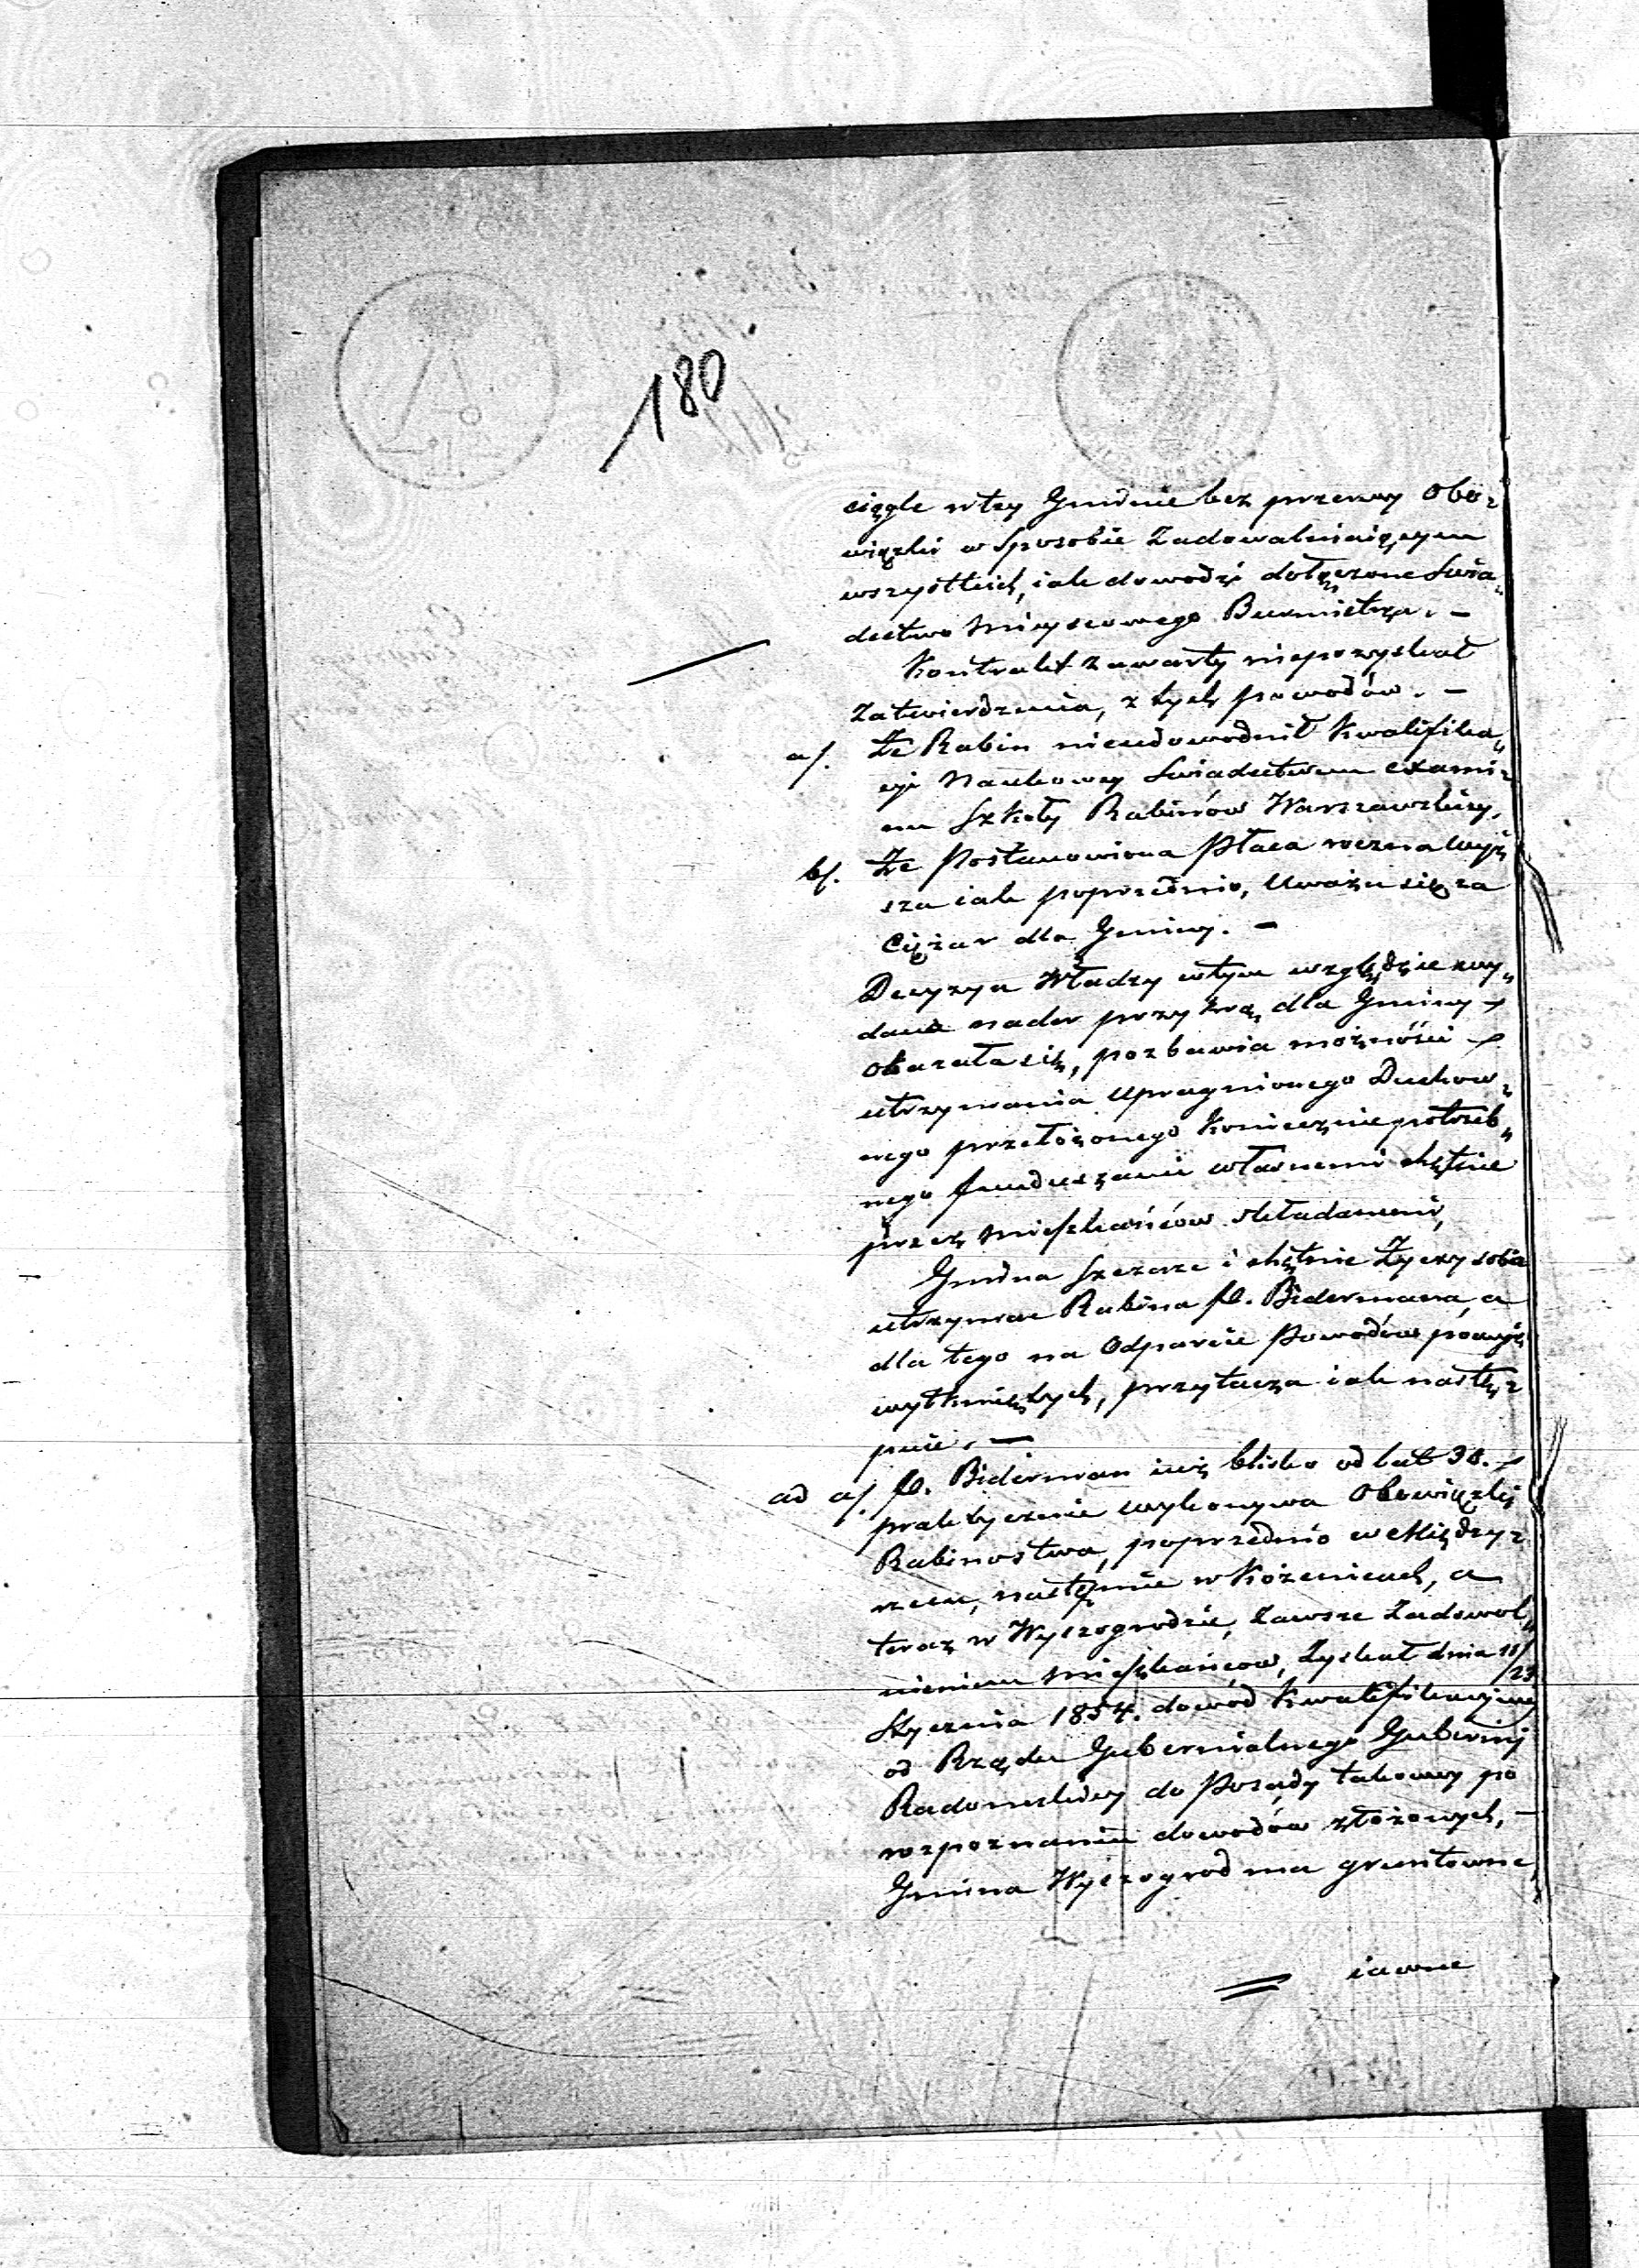 180
ciągle w tey Gminie bez przerwy Obo-
wiązki w Sposobie Zadowalniaiącym
wszystkich, iak dowodzi dołączone Swia-
dectwo Mieyscowego Burmistrza. —
Kontrakt zawarty niepozyskał
Zatwierdzenia, z tych powodów. —
a/. Że Rabin nieudowodnił Kwalifika-
cyi Naukowey Swiadectwem exami-
nu Szkoły Rabinów Warszawskiey.
b/. Że Postanowiona Płaca roczna wyż
sza iak poprzednio, Uważa się za
Ciężar dla Gminy. —
Decyzya Władzy w tym względzie wy-
dana nader przykrą dla Gminy
okazała się, pozbawia możności
utrzymania Upragnionego Duchow-
nego przełożonego Koniecznie potrzeb-
nego funduszami własnemi chętnie
przez Mieszkańców składanemi,
Gmina Szczerze i chętnie Życzy sobie
utrzymac Rabina fl. Bidermana, a
dla tego na Odparcie Powodów powyż
wytkniętych, przytacza iak nastę-
puie. —
ad a/. fl. Biderman iuż blisko od lat 30.
praktycznie wykonywa Obowiązki
Rabinostwa, poprzednio w Między-
rzecu, następnie w Kożenicach, a
teraz w Wyszogrodzie, Zawsze Zadowol-
nieniem Mieszkańców, Zyskał dnia 11/23
Stycznia 1854. dowód Kwalifikacyiny
od Rządu Gubernialnego Gubernij
Radomskiey do Posady takowey po
rozpoznaniu dowodów złożonych, —
Gmina Wyszogrod ma gruntowne
iawne